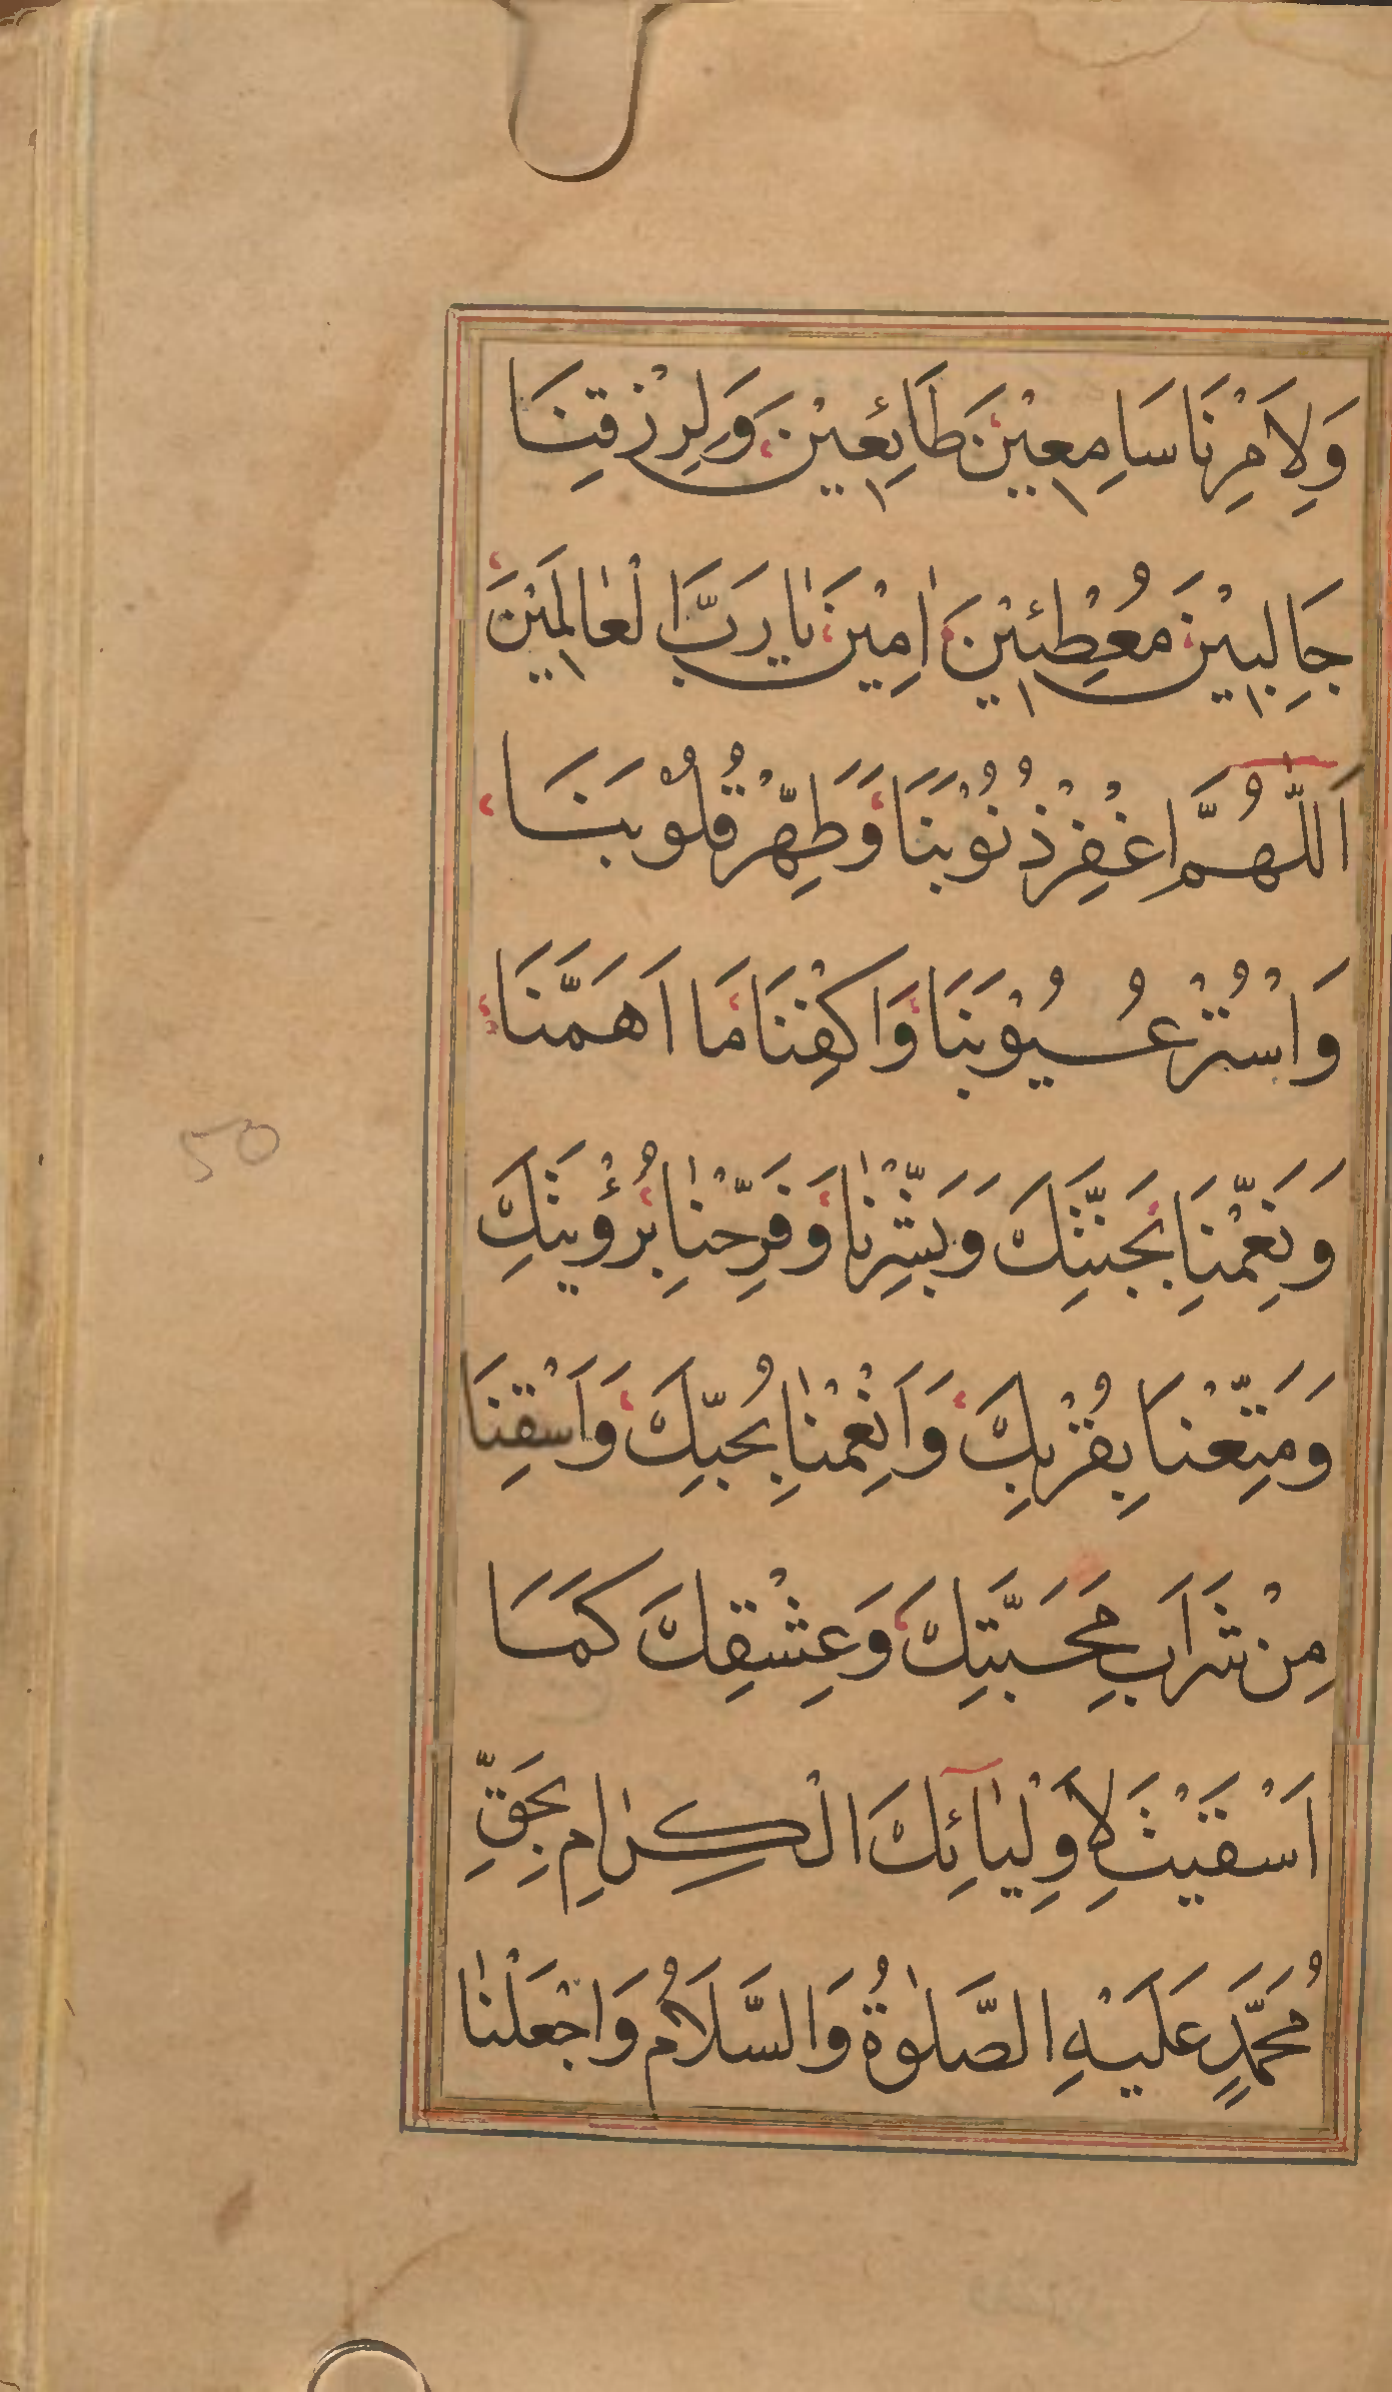 وَلِاَمْرِنَا سَامِعِيْنَ طَائِعِيْنَ وَلِرِزْقِنَا
جَالِبِيْنَ مُعْطِئِيْنَ اٰمِيْنَ يٰا رَبَّ الْعٰالَمِيْنَ
اَللّٰهُمَّ اغْفِرْ ذُنُوْبَنَا وَطَهِّرْ قُلُوْبَنَا
وَاسْتُرْ عُيُوْبَنَا وَاكْفِنَا مَا اَهَمَّنَا
وَنَعِّمْنَا بِجَنَّتِكَ وَبَشِّرْنٰا وَفَرِّحْنٰا بِرُؤْيَتِكَ
وَمَتِّعْنَا بِقُرْبِكَ وَاَنْعِمْنٰا بِحُبِّكَ وَاَسْقِنَا
مِنْ شَرَابِ مَحَبَّتِكَ وَعِشْقِكَ كَمَا
اَسْقَيْتَ لِاَوْلِيٰآئِكَ الْكِرٰامِ بِحَقِّ
مُحَمَّدٍ عَلَيْهِ الصَّلٰوةُ وَالسَّلَامُ وَاجْعَلْنٰا
50